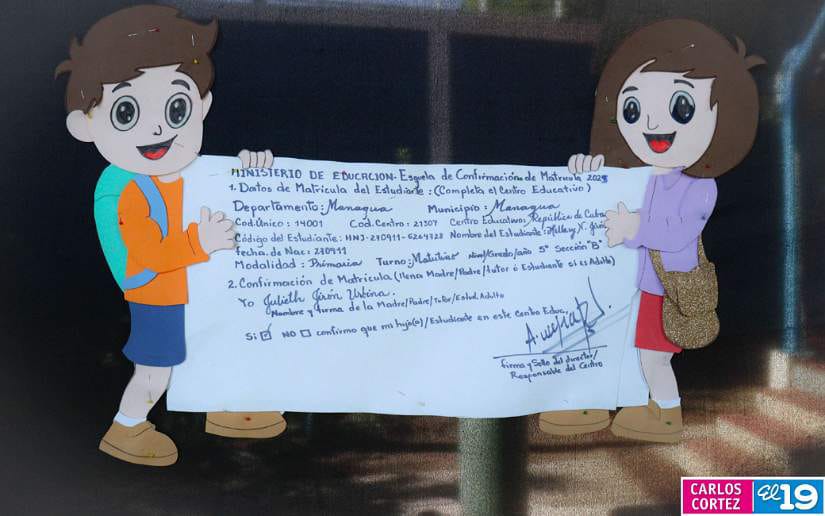 MINISTERIO DE EDUCACION. Esquela de Confirmación de Matricula
1. Datos de Matricula del Estudiante: (Completa el Centro Educativo)
Departamento: Managua Municipio: Managua
Cod. Único: 14001 Cod. Centro: 21307 Centro Educativo: República de Cuba
Código del Estudiante: Nombre del Estudiante:
fecha de Nac: 270911
Modalidad: Primaria Turno: Matutino Nivel/Grado/año 5° Sección "B"
2. Confirmación de Matricula (llena Madre/Padre/Tutor ó Estudiante si es Adulto)
Yo Julieth Jirón Urbina.
Nombre y firma de la Madre/Padre/Tutor/Estud. Adulto
Si ☑ NO ☐ confirmo que mi hijo(a)/Estudiante en este Centro Educ.
firma y Sello del director/
Responsable del Centro
CARLOS
CORTEZ
El 19